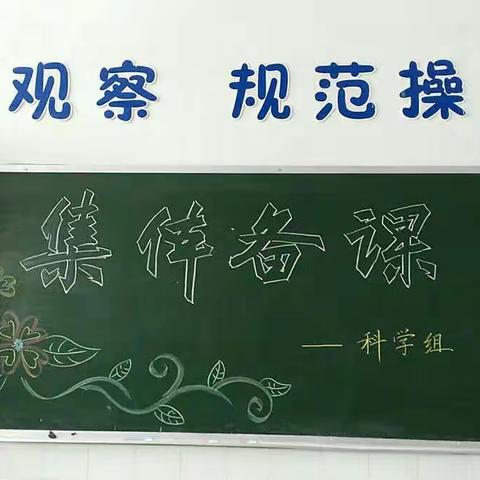 观察 规范操
集体备课
— 科学组